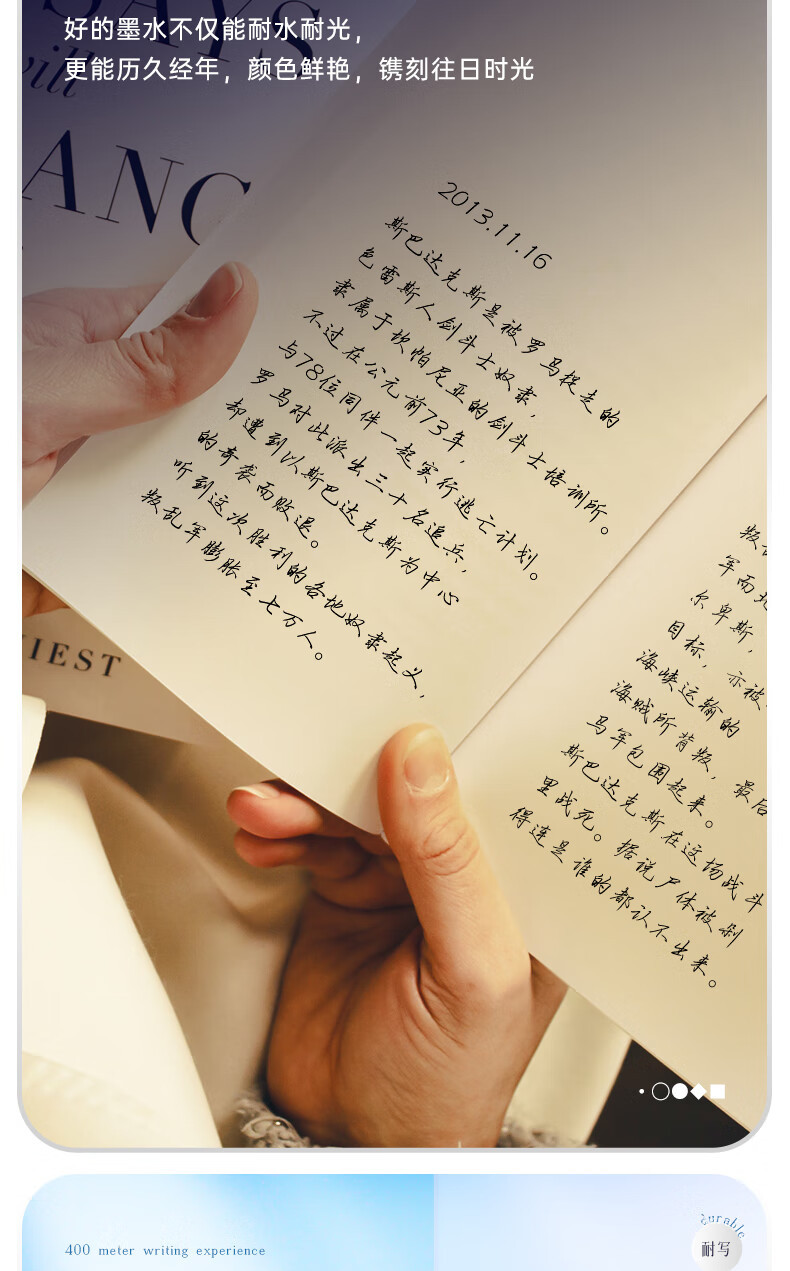 好的墨水不仅能耐水耐光，
更能历久经年，颜色鲜艳，镌刻往日时光
SAYS
will
ANC
2013.11.16
斯巴达克斯是被罗马捉走的
色雷斯人剑斗士奴隶，
隶属于坎帕尼亚的剑斗士培训所。
不过在公元前73年，
与78位同伴一起实行逃亡计划。
罗马对此派出三十名追兵，
却遭到以斯巴达克斯为中心
的奇袭而败退。
听到这次胜利的各地奴隶起义，
叛乱军膨胀至七万人。
叛
军而
尔卑斯，
目标，亦被
海峡运输的
海贼所背叛，最后
马军包围起来。
斯巴达克斯在这场战斗
里战死。据说尸体被剁
得连是谁的都认不出来。
IEST
400 meter writing experience
durable
耐写